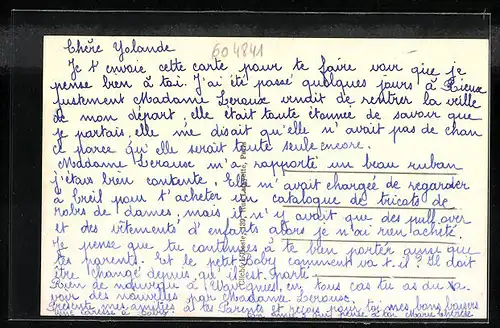 604841
Chère Yolande
Je t'envoie cette carte pour te faire voir que je
pense bien à toi. J'ai été passé quelques jours à Rieux
justement Madame Leroux vendit de rentrer la veille
de mon départ, elle était toute étonnée de savoir que
je partais, elle me disait qu'elle n'avait pas de chan
ce parce qu'elle serait toute seule encore.
Madame Lerousse m'a rapporté un beau ruban
j'étais bien contente, Elle m'avait chargée de regarder
à Creil pour t'acheter un catalogue de tricots de
robes de dames, mais il n'y avait que des pull, over
et des vêtements d'enfants alors je n'ai rien acheté.
Je pense que tu continues à te bien porter ainsi que
tes parents. Et le petit Boby comment va-t-il? Il doit
être changé depuis qu'il est parti
Rien de nouveau à en tous cas tu as du sa-
voir des nouvelles par Madame Lerousse.
Présente mes amitiés à tes Parents et reçois pour toi mes bons baisers
Une caresse à Boby Ton amie Marie Thérèse